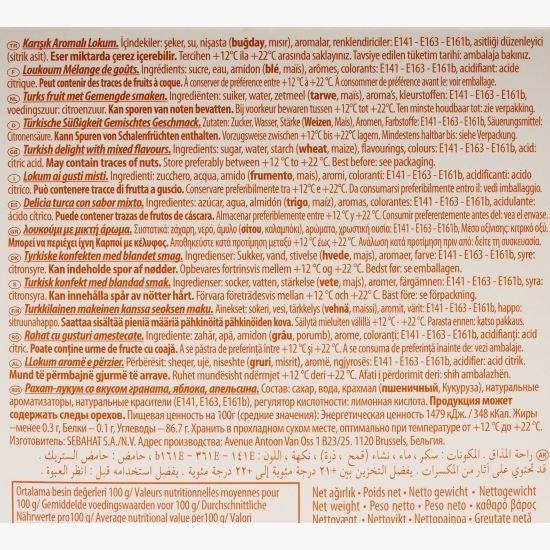 TR Karışık Aromalı Lokum. İçindekiler: şeker, su, nişasta (buğday, mısır), aromalar, renklendiriciler: E141 - E163 - E161b, asitliği düzenleyici
(sitrik asit). Eser miktarda çerez içerebilir. Tercihen +12°C ila +22°C arasında saklayınız. Tavsiye edilen tüketim tarihi: ambalaja bakınız.
F Loukoum Mélange de goûts. Ingrédients: sucre, eau, amidon (blé, maïs), arômes, colorants: E141 - E163 - E161b, acidifiant: acide
citrique. Peut contenir des traces de fruits à coque. À conserver de préférence entre +12°C à +22°C. À consommer de préférence avant le: voir emballage.
NL Turks fruit met Gemengde smaken. Ingrediënten: suiker, water, zetmeel (tarwe, maïs), aroma's, kleurstoffen: E141 - E163 - E161b,
voedingszuur: citroenzuur. Kan sporen van noten bevatten. Bij voorkeur bewaren tussen +12°C tot +22°C. Ten minste houdbaar tot: zie verpakking.
Türkische Süßigkeit Gemischtes Geschmack. Zutaten: Zucker, Wasser, Stärke (Weizen, Mais), Aromen, Farbstoffe: E141 - E163 - E161b, Säuerungsmittel:
Citronensäure. Kann Spuren von Schalenfrüchten enthalten. Vorzugsweise zwischen +12°C bis +22°C lagern. Mindestens haltbar bis: siehe Verpackung.
GB Turkish delight with mixed flavours. Ingredients: sugar, water, starch (wheat, maize), flavourings, colours: E141 - E163 - E161b, acid:
citric acid. May contain traces of nuts. Store preferably between +12 °C to +22 °C. Best before: see packaging.
I Lokum ai gusti misti. Ingredienti: zucchero, acqua, amido (frumento, mais), aromi, coloranti: E141 - E163 - E161b, acidificanti: acido
citrico. Può contenere tracce di frutta a guscio. Conservare preferibilmente tra +12°C e +22°C. Da consumarsi preferibilmente entro il: vedi imballaggio.
Delicia turca con sabor mixto. Ingredientes: azúcar, agua, almidón (trigo, maíz), aromas, colorantes: E141 - E163 - E161b, acidulante:
ácido cítrico. Puede contener trazas de frutos de cáscara. Almacenar preferiblemente entre +12 °C y +22 °C. Consumir preferentemente antes del: vea el envase.
λουκούμι με μικτή άρωμα. Συστατικά: ζάχαρη, νερό, άμυλο (σίτου, καλαμπόκι), αρώματα, χρωστική ουσία: E141 - E163 - E161b, Μέσο οξίνισης: κιτρικό οξύ.
Μπορεί να περιέχει ίχνη Καρποί με κέλυφος. Αποθηκεύστε κατά προτίμηση μεταξύ +12°C έως +22°C. Ανάλωση κατά προτίμηση πριν από: δείτε τη συσκευασία.
DK Tyrkiske konfekten med blandet smag. Ingredienser: Sukker, vand, stivelse (hvede, majs), aromaer, farve: E141 - E163 - E161b, syre:
citronsyre. Kan indeholde spor af nødder. Opbevares fortrinsvis mellem +12°C og +22°C. Bedst før: se emballagen.
Turkisk konfekt med blandad smak. Ingredienser: socker, vatten, stärkelse (vete, majs), aromer, färgämnen: E141 - E163 - E161b, syra:
citronsyra. Kan innehålla spår av nötter hårt. Förvara företrädesvis mellan +12°C och +22° C. Bäst före: se förpackning.
Turkkilainen makeinen kanssa seoksen maku. Ainekset: sokeri, vesi, tärkkelys (vehnä, maissi), aromit, värit: E141 - E163 - E161b, happo:
sitruunahappo. Saattaa sisältää pieniä määriä pähkinöitä pähkinöiden kova. Säilytä mieluiten välillä +12°C - +22°C. Parasta ennen: katso pakkaus.
Rahat cu gusturi amestecate. Ingrediente: zahăr, apă, amidon (grâu, porumb), arome, coloranți: E141 - E163 - E161b, acidifiant: acid
citric. Poate conține urme de fructe cu coajă. A se păstra de preferință între +12°C și +22°C. A se consuma de preferință înainte de: vezi ambalaje.
LLokum aromë e përzier. Përbërësit: sheqer, ujë, niseshte (gruri, misrit), aromë, ngjyrosës: E141 - E163 - E161b, acidifier: acid citrik.
Mund të përmbajnë gjurmë të arrave. Ruhet mundësisht ndërmjet +12°C deri +22°C. Afati i përdorimit deri: shih ambalazhën.
Рахат-лукум со вкусом граната, яблока, апельсина. Состав: сахар, вода, крахмал (пшеничный, Кукуруза), натуральные
ароматизаторы, натуральные красители (E141, E163, E161b), регулятор кислотности: лимонная кислота. Продукция может
содержать следы орехов. Пищевая ценность на 100г (средние значения): Энергетическая ценность 1479 кДж. / 348 кКал. Жиры
–менее 0.3 г, Белки – 0.1 г, Углеводы – 86.7 г. Хранить в прохладном сухом месте, оптимально при температуре от +12 °C до +22°C.
Изготовитель: SEBAHAT S.A./N.V. Адрес производства: Avenue Antoon Van Oss 1 B23/25. 1120 Brussels, Бельгия.
راحة المذاق. المكونات: سكر، ماء، نشاء (قمح، ذرة)، نكهة، اللون: E141 - E163 - E161b، حامض: حامض الستريك.
قد تحتوي على آثار من المكسرات. يفضل التخزين بين +12 درجة مئوية إلى +22 درجة مئوية. يفضل استخدامه قبل: انظر العبوة.
Ortalama besin değerleri 100 g/ Valeurs nutritionnelles moyennes pour
100 g/ Gemiddelde voedingswaarden voor 100 g/ Durchschnittliche
Nährwerte pro100 g/ Average nutritional value per100 g/ Valori
Net ağırlık • Poids net • Netto gewicht • Nettogewicht
Net weight • Peso netto • Peso neto • καθαρό βάρος
Nettovægt • Nettovikt • Nettopainoa • Greutate netă